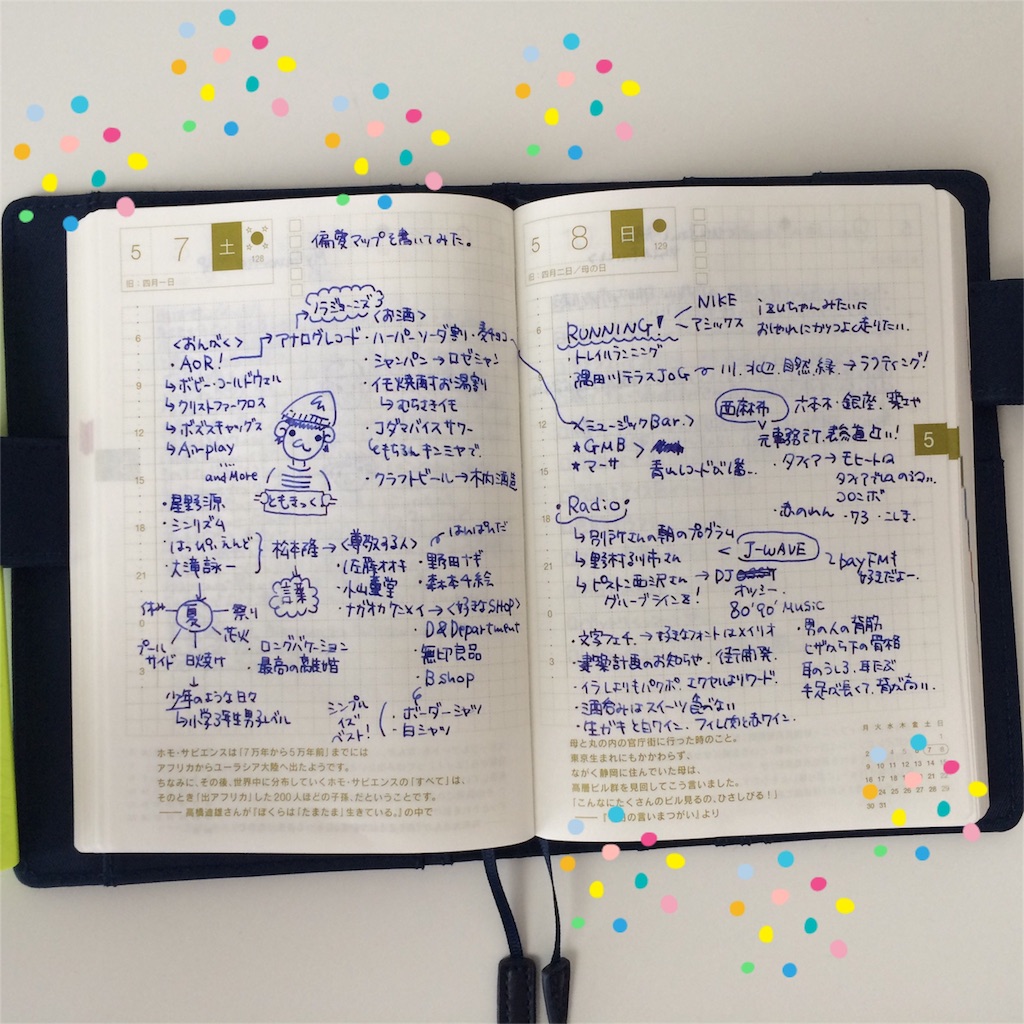 5 7 土
128
旧:四月一日
偏愛マップを書いてみた。
ノラジョーンズ
<おんがく>
アナログレコード
・AOR!
↳ボビーコールドウェル
↳クリストファークロス
↳ボズスキャッグス
↳Airplay
and More
<お酒>
・ハーパーソーダ割り・麦チョコ
・シャンパン→ロゼシャン
・イモ焼酎お湯割
↳むらさきイモ
・Jダマバイスサワー
ともちろんキンミヤで。
・クラフトビール→木内酒造
ともきっく
・星野源
・シンリズム
・はっぴぃえんど
・大滝詠一
松本隆→<尊敬する人>
言葉
・佐藤オオキ
・小山薫堂
・ナガオカケンメイ→<好きなSHOP>
・野田ナギ
・森本千絵
・D&Department
・無印良品
・Bshop
・ボーダーシャツ
・白シャツ
シンプル
イズ
ベスト!
夏
祭り
花火
日焼け
プール
サイド
・ロングバケーション
・最高の離婚
少年のような日々
↳小学3年生男子レベル
6
9
12
15
18
21
0
3
ホモ・サピエンスは「7万年から5万年前」までには
アフリカからユーラシア大陸へ出たようです。
ちなみに、その後、世界中に分布していくホモ・サピエンスの「すべて」は、
そのとき「出アフリカ」した200人ほどの子孫、だということです。
——高橋迪雄さんが『ぼくらは「たまたま」生きている。』の中で
5 8 日
129
旧:四月二日/母の日
RUNNING!
NIKE
アシックス
izuちゃんみたいに
おしゃれにかっこよく走りたい。
・トレイルランニング
・隅田川テラスJOG
川、水辺、自然、緑、→ラフティング!
<ミュージックBar.>
★GMB
★マーサ
西麻布
六本木・銀座
・タフィア→モヒートは
コロンボ
・赤のれん・73・こしま。
・Radio・
↳別所さんの朝のプログラム
↳野村訓市さん
↳ピストン西沢さん→DJ
グルーブラインZ!
J-WAVE
bayFMも
好きだよー。
オッシー
80'90' MUSIC
・文字フェチ。→好きなフォントはメイリオ
・建築計画のお知らせ・街開発。
・イラレよりもパワポ、エクセルよりワード。
・酒呑みはスイーツ食べない
・生ガキと白ワイン、フィレ肉と赤ワイン。
・男の人の背筋
ヒザから下の骨格
耳のうしろ、耳たぶ
手足が長くて、背が高い。
5
6
9
12
15
18
21
0
3
母と丸の内の官庁街に行った時のこと。
東京生まれにもかかわらず、
ながく静岡に住んでいた母は、
高層ビル群を見回してこう言いました。
「こんなにたくさんのビル見るの、ひさしぶり!」
の言いまつがい』より
月 火 水 木 金 土 日